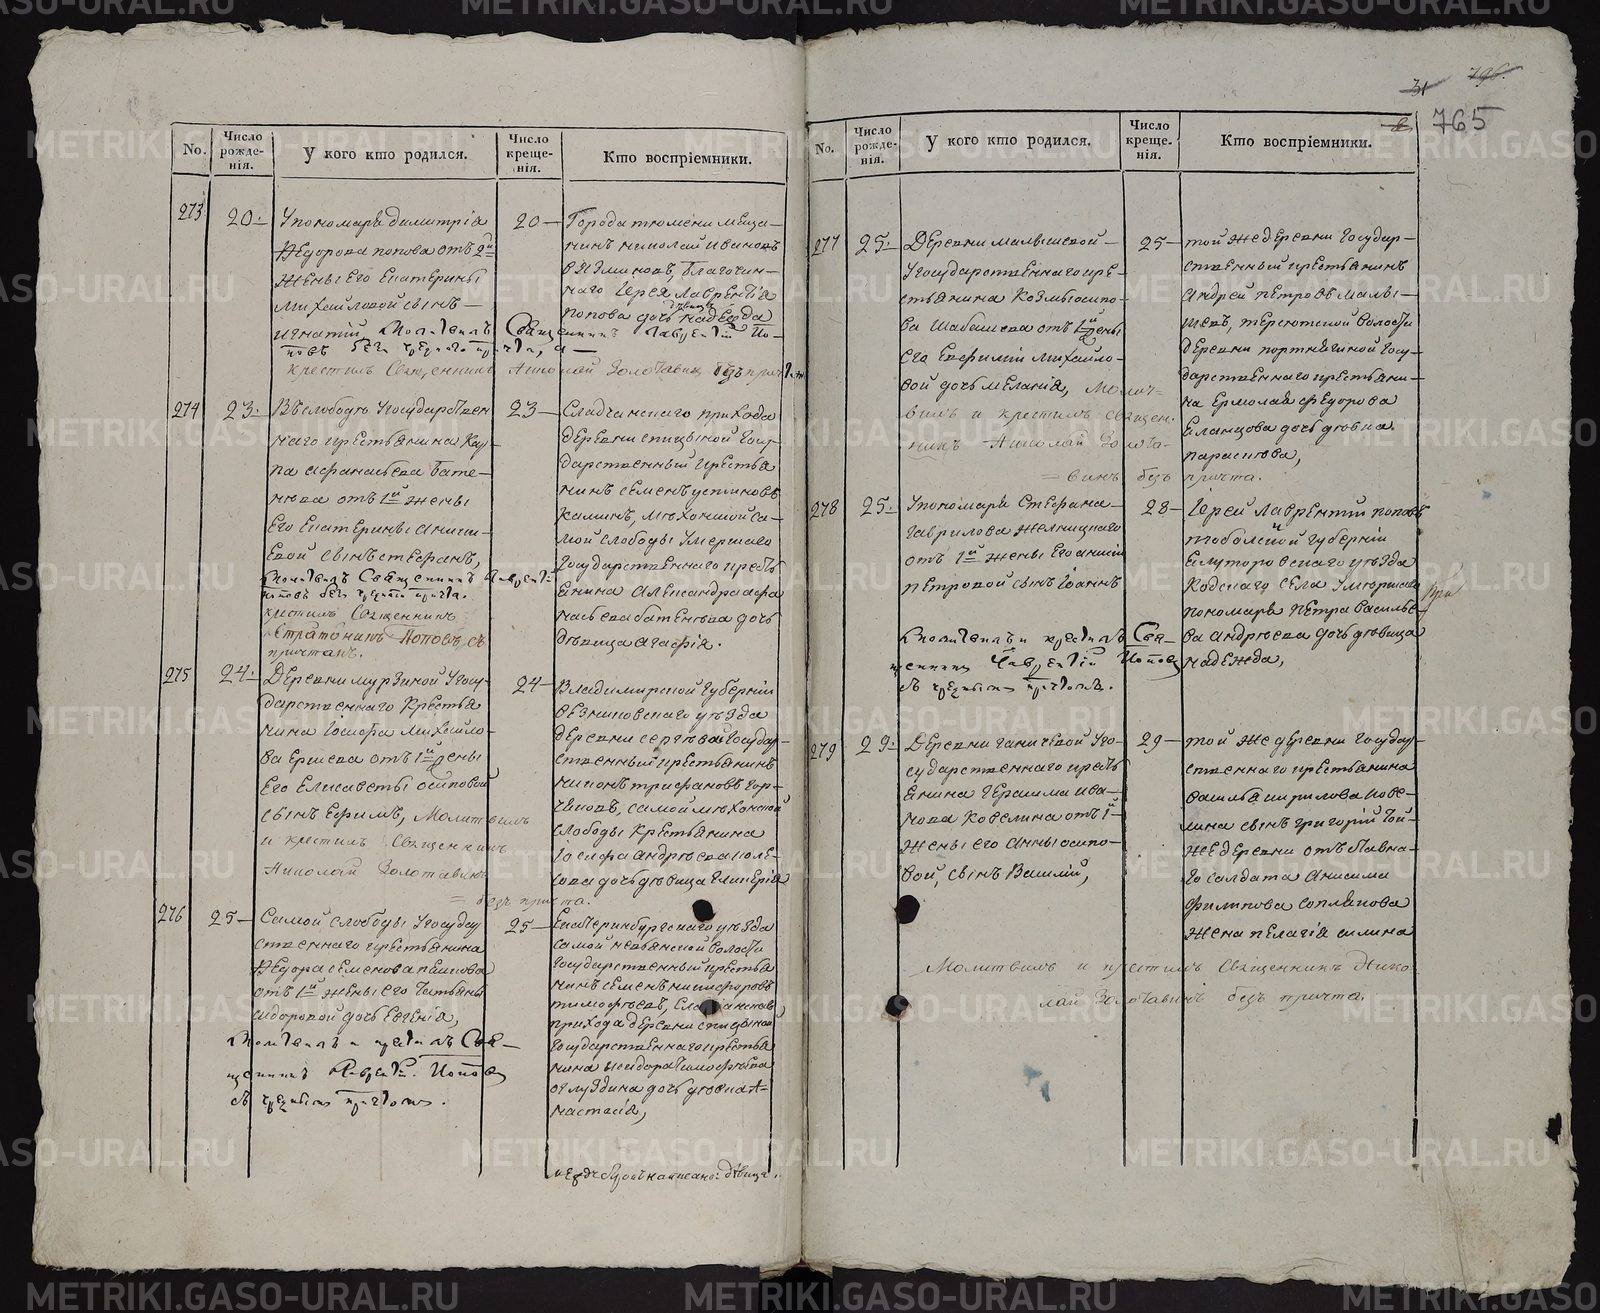 31 796.
765
No.
Число рожде-нія.
У кого кто родился.
Число креще-нія.
Кто воспріемники.
273
20.
Упономаря димитрія
Ѳедорова попова отъ 2й
жены Его Екатерины
михайловой сынъ
игнатій, Молитвилъ Священникъ Лаврентій По-
повъ безъ причта, а
крестилъ Священникъ Николай Золотавинъ безъ причта
20
Города тюмени меща-
нинъ николай ивановъ
благочин-
наго Іерея лаврентія
попова дочь девица надежда
274
23.
Въ слободѣ Угосударствен
наго крестьянина Кар-
па афанасьева бате-
нева отъ 1й жены
Его Екатерины
сынъ стефанъ,
Молитвилъ Священникъ Лаврентій
Поповъ безъ причта.
крестилъ Священникъ
Стратоникъ Поповъ, съ
причтомъ.
23
прихода
деревни спицыной Госу-
дарственный крестья
нинъ семенъ устиновъ
Калининъ, мехонской са-
мой слободы Умершаго
Государственнаго кресть
янина Александра афа
насьева батенева дочь
дѣвица агафія.
275
24.
Деревни мурзиной Угосу-
дарственнаго Крестья
нина Іосифа михайло-
ва Ершева отъ 1й жены
Его Елисаветы осиповой
сынъ Ефимъ, Молитвилъ
и крестилъ Священникъ
Николай Золотавинъ
безъ причта.
24
Владимирской Губерніи
вязниковскаго уѣзда
деревни сергѣевой Государ-
ственный крестьянинъ
никонъ трифановъ Гор-
самой мехонской
слободы Крестьянина
Іосифа андреева поле-
това дочь дѣвица Гликерія
276
25
Самой слободы Угосудар
ственнаго крестьянина
Ѳедора семенова пешкова
отъ 1й жены его Татьяны
сидоровой дочь Евгенія,
Молитвилъ и крестилъ Свя-
щенникъ Лаврентій Поповъ
съ причтомъ.
25
Екатеринбургскаго уѣзда
самой невьянской волости
Государственный крестья
нинъ семенъ никифоровъ
тимофѣевъ,
прихода деревни спицыной
Государственнаго крестья
нина исидора тимофѣева
дочь дѣвица А-
настасія,
дѣвица.
No.
Число рожде-нія.
У кого кто родился.
Число креще-нія.
Кто воспріемники.
277
25.
Деревни малышевой
Угосударственнаго кре-
стьянина Козмы осипо-
ва Шабашева отъ 1й жены
его Евфиміи михайло-
вой дочь меланія, Молит-
вилъ и крестилъ священ-
никъ Николай Золота-
винъ безъ причта.
25
той же деревни Государ-
ственный крестьянинъ
андрей петровъ малы-
шевъ, терсютской волости
деревни портнягиной Госу-
дарственнаго крестьяни-
на Ермолая Федорова
Еланцова дочь дѣвица
параскева,
278
25.
Упономаря Стефана
гаврилова желницкаго
отъ 1й жены Его анны
петровой сынъ Іоаннъ
Молитвилъ и крестилъ Свя-
щенникъ Лаврентій Поповъ
съ причтомъ.
28
Іерей лаврентій поповъ
тобольской губерніи
Ялуторовскаго уѣзда
Кодскаго села Умершаго
пономаря Петра василье-
ва андреева дочь дѣвица
надежда,
279
29.
Деревни ганичевой Уго-
сударственнаго кресть
янина Герасима ива-
нова Ковелина отъ 1й
жены его анны осипо-
вой, сынъ Василій,
29
той же деревни Государ-
ственнаго крестьянина
василья кирилова кове-
лина сынъ григорій той
же деревни отставна-
го солдата анисима
филипова
жена пелагія
Молитвилъ и крестилъ Священникъ Нико-
лай Золотавинъ безъ причта.
METRIKI.GASO-URAL.RU